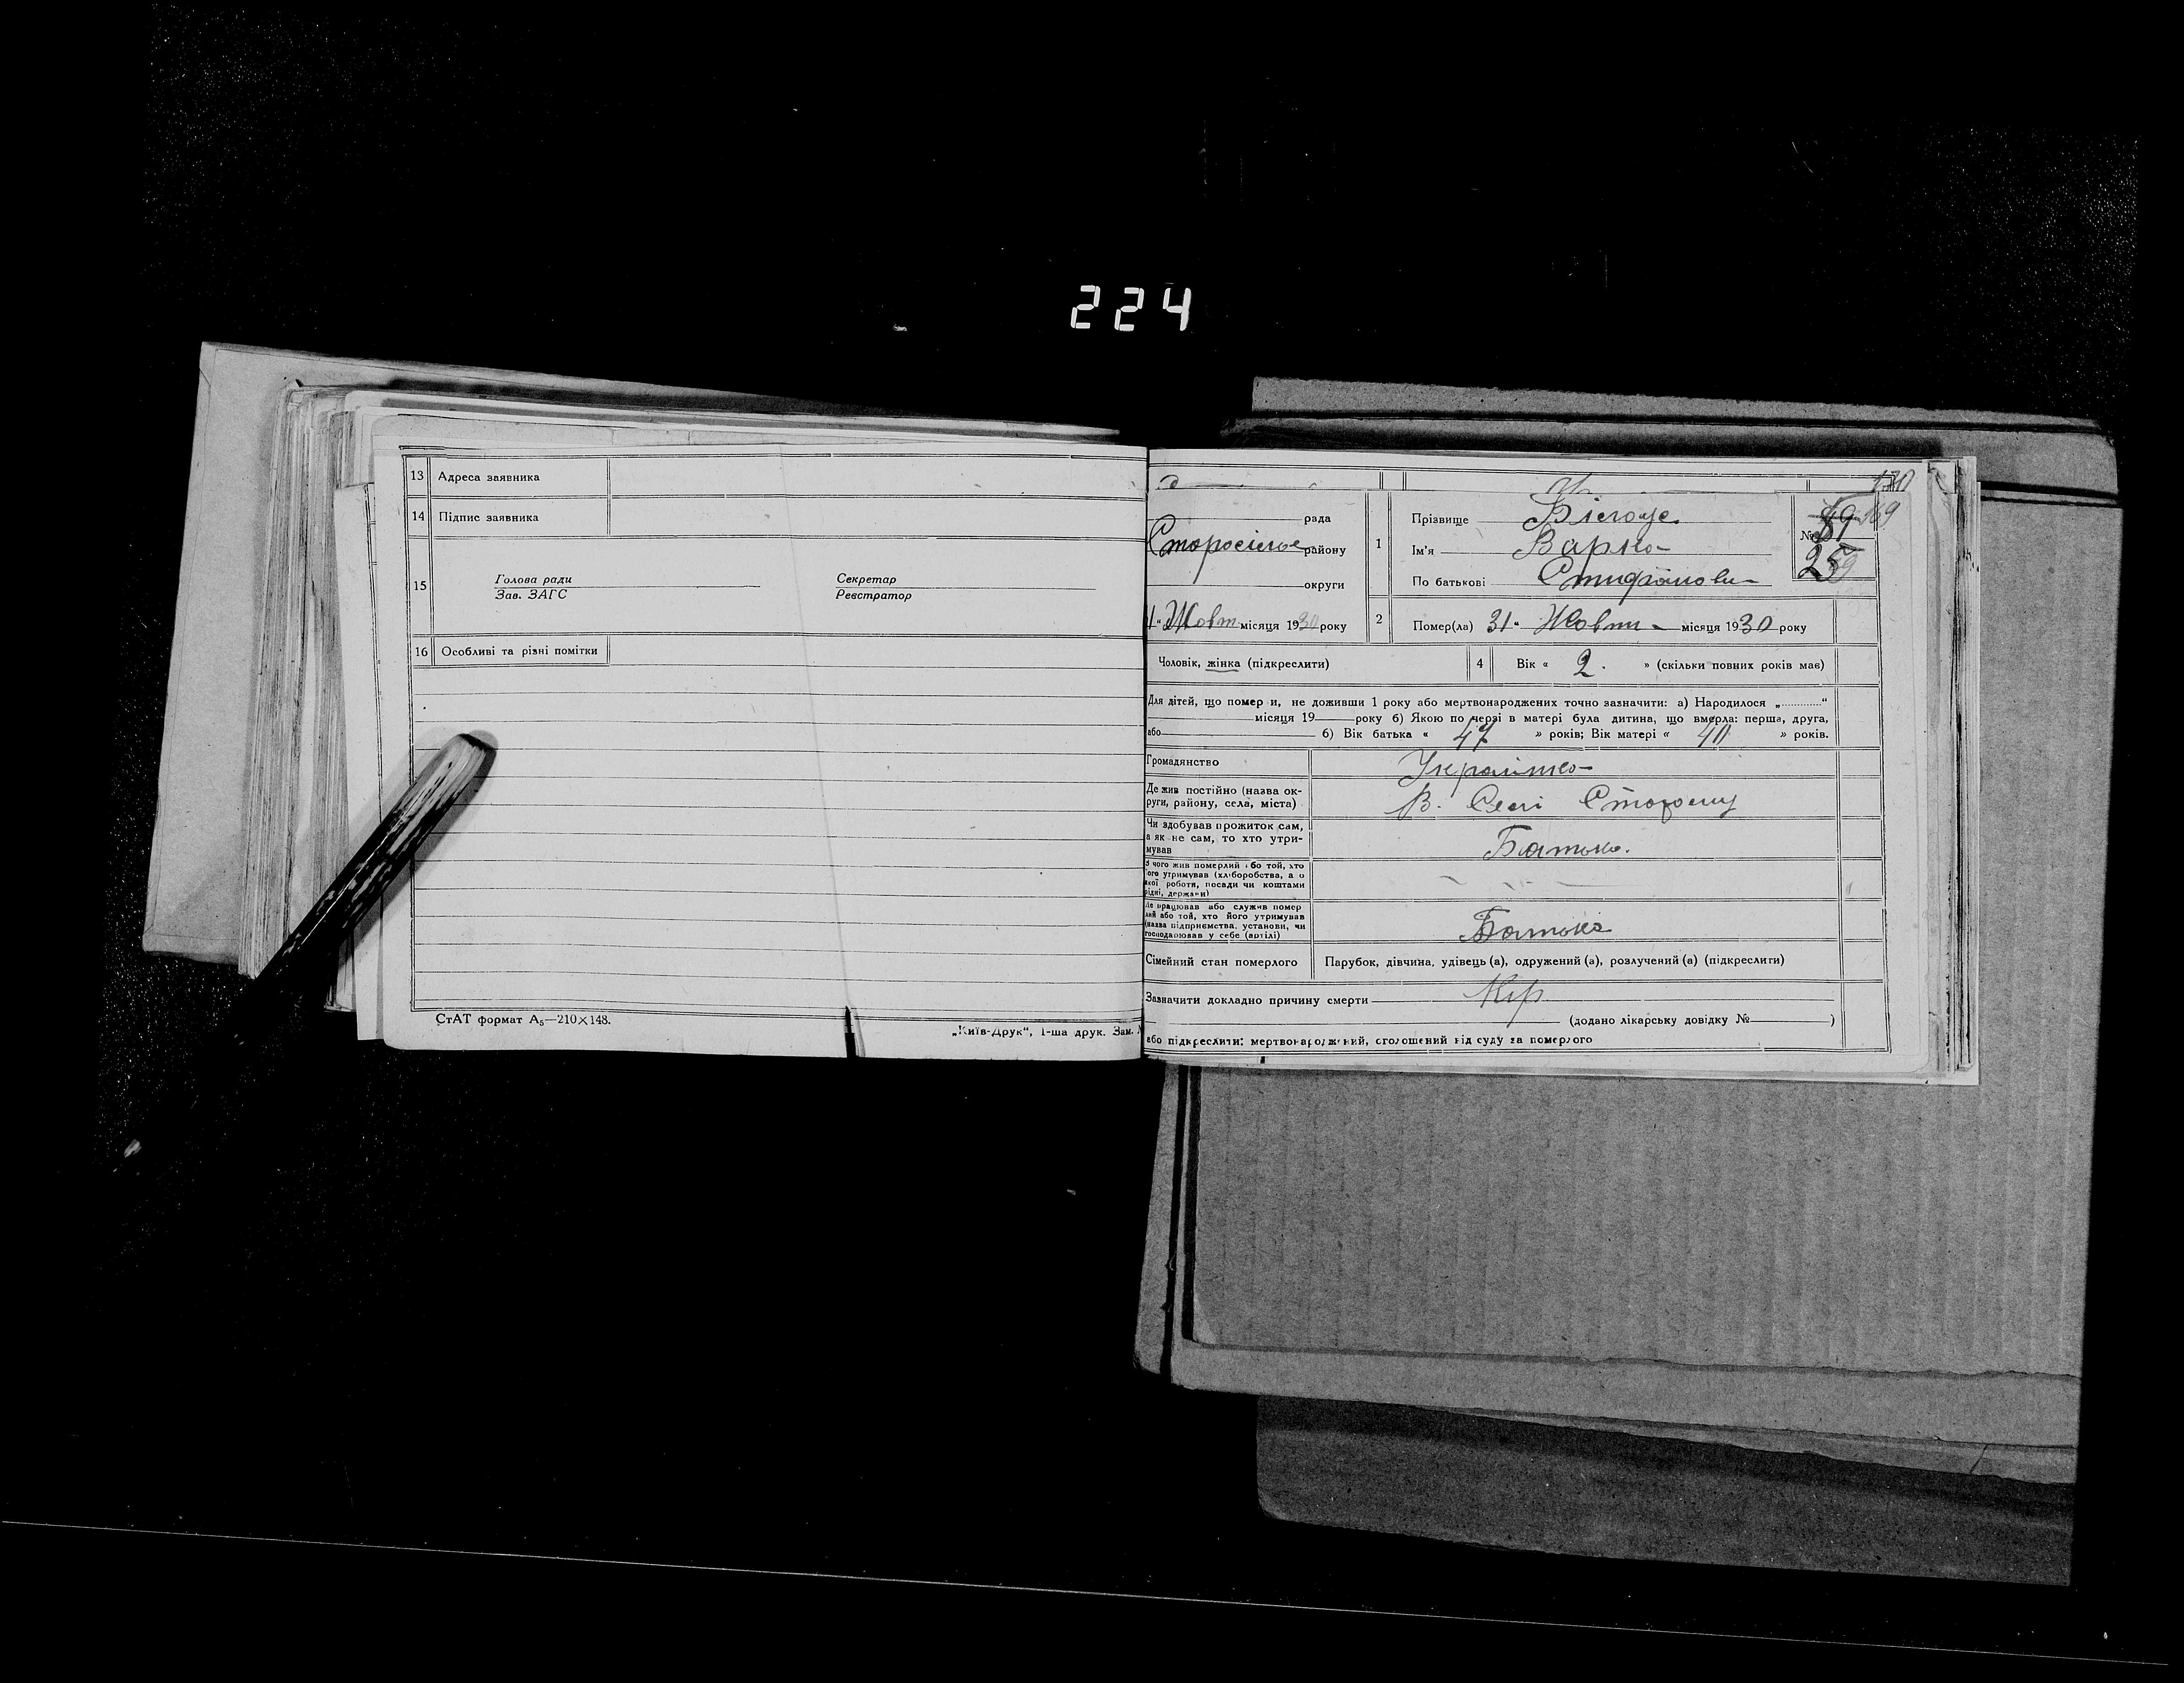 224
13 Адреса заявника
14 Підпис заявника
15 Голова ради Секретар
Зав. ЗАГС Реєстратор
16 Особливі та різні помітки
СтАТ формат А₅—210×148.
„Київ-Друк“, 1-ша друк. Зам.
170
рада
району
округи
1" Жовт місяця 1930 року
1 Прізвище
Ім'я Варка
По батькові
№ 81
169
2 Помер(ла) 31 " Жовтн місяця 1930 року
Чоловік, жінка (підкреслити)
4 Вік « 2 . » (скільки повних років має)
Для дітей, що померли, не доживши 1 року або мертвонароджених точно зазначити: а) Народилося „............“
місяця 19 року б) Якою по черзі в матері була дитина, що вмерла: перша, друга,
або б) Вік батька « 47 » років; Вік матері « 40 » років.
Громадянство Українка
Де жив постійно (назва ок-
руги, району, села, міста) В. Селі
Чи здобував прожиток сам,
а як не сам, то хто утри-
мував Батько.
З чого жив померлий або той, хто
його утримував (хліборобства, а о
якої роботи, посади чи коштами
рідні, держави)
Де працював або служив помер
лий або той, хто його утримував
(назва підприємства, установи, чи
господарював у себе (артілі) Батько
Сімейний стан померлого Парубок, дівчина, удівець (а), одружений (а), розлучений (а) (підкреслити)
Зазначити докладно причину смерти Кір
(додано лікарську довідку № )
або підкреслити: мертвонароджений, оголошений від суду за померлого